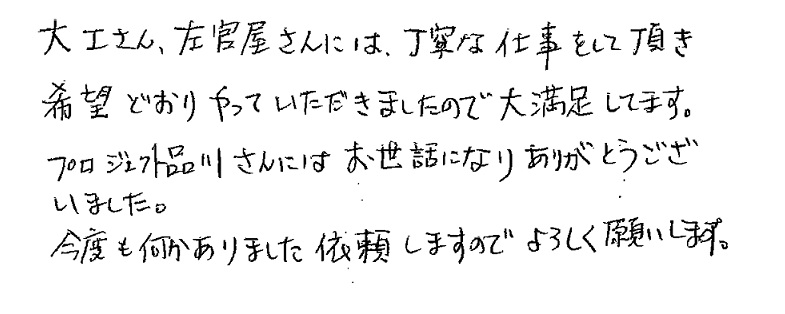 大工さん、左官屋さんには、丁寧な仕事をして頂き
希望どおりやっていただきましたので大満足してます。
プロジェクト品川さんにはお世話になりありがとうござ
いました。
今度も何かありました依頼しますのでよろしく願いします。